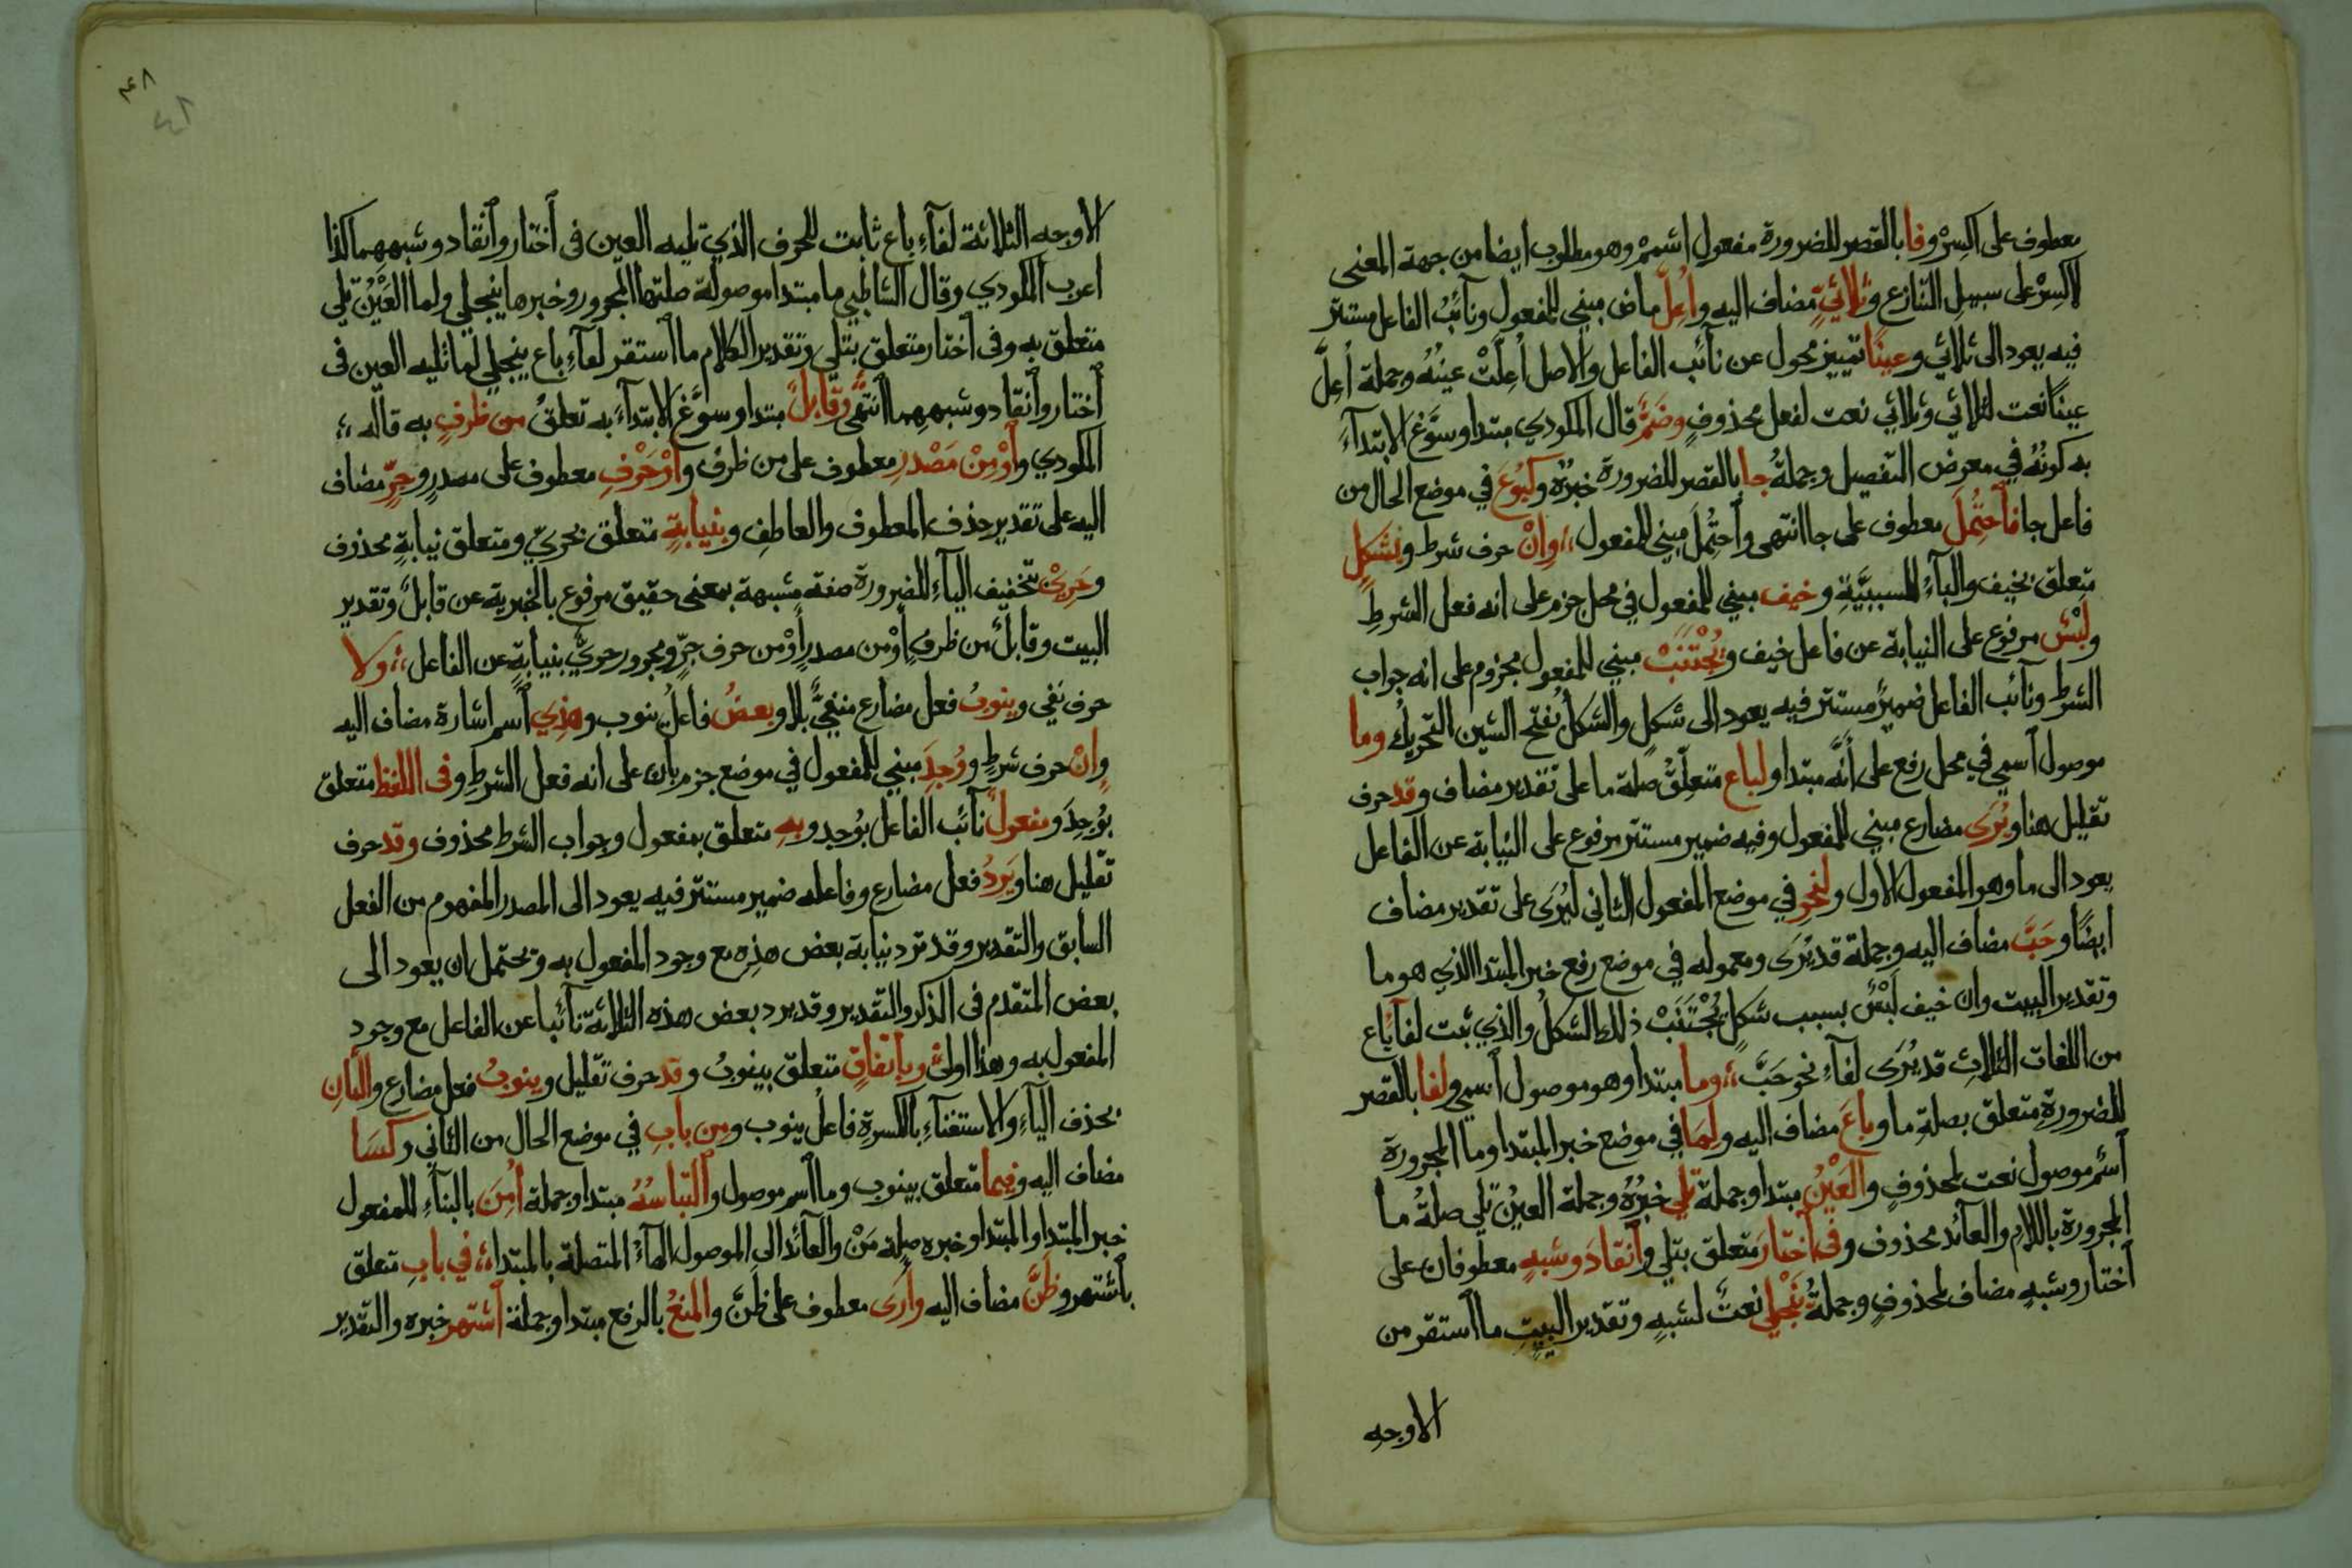 معطوف على اكسِرْ وفا بالقصر للضرورة مفعول اشمِمْ وهو مطلوب ايضا من جهة المعنى
لاكسِرْ على سبيل التنازع وثلاثيٍّ مضاف اليه واُعِلَّ ماض مبني للمفعول ونآئبُ الفاعل مستتر
فيه يعود الى ثلاثي وعينًا تمييز محول عن نآئب الفاعل والاصل اُعِلَّتْ عينُهُ وجملة اُعِلَّ
عينًا نعت لثلاثي وثلاثي نعت لفعل محذوفٍ وضَمٌّ قال المكودي مبتدا وسوَّغ الابتدآءَ
به كونُهُ في معرض التفصيل وجملةُ جا بالقصر للضرورة خبرُهُ وكَبُوعَ في موضع الحال من
فاعل جا فاَحتُمِلَ معطوف على جا انتهى واَحتُمِلَ مبني للمفعول ،، واِنْ حرف شرط وبِشَكلٍ
متعلق بخيف والبآءُ للسببيَّةِ وخيف مبني للمفعول في محل جزم على انه فعل الشرطِ
ولَبْسٌ مرفوع على النيابة عن فاعل خيف ويُجْتَنَبْ مبني للمفعول مجزوم على انه جواب
الشرط ونآئب الفاعل ضميرٌ مستتر فيه يعود الى شكلٍ والشكلُ بفتح الشين التحريكُ وما
موصول اَسمي في محل رفع على اَنَّه مبتدا ولباع متعلِّقٌ صلة ما على تقدير مضاف وقد حرف
تقليل هنا ويُرَى مضارع مبني للمفعول وفيه ضمير مستتر مرفوع على النيابة عن الفاعل
يعود الى ما وهو المفعول الاول ولنحوِ في موضع المفعول الثاني ليُرَى على تقدير مضاف
ايضًا وحَبَّ مضاف اليه وجملة قد يُرَى ومعموله في موضع رفع خبر المبتدا الذي هو ما
وتقدير البيت وان خيف لَبْسٌ بسبب شكلٍ يُجْتَنَبْ ذلك الشكلُ والذي ثبت لفآ باع
من اللغات الثلاثِ قد يُرَى لفآءِ نحو حَبَّ ،، وما مبتدا وهو موصول اَسمي ولفا بالقصر
للضرورةِ متعلق بصلةِ ما وباعَ مضاف اليه ولِمَا في موضع خبر المبتدا وما المجرورة
اَسْم موصول نعت لمحذوفٍ والعَيْنُ مبتدا وجملة تَلِي خبرُهُ وجملة العينُ تَلي صلةُ ما
المجرورة باللام والعآئد محذوف وفي اَختارَ متعلق بتلي واَنقادَ وشبهٍ معطوفان على
اَختار وشبهٍ مضاف لمحذوفٍ وجملةُ يَنجلي نعتٌ لشبهٍ وتقدير البيتِ ما اَستقر من
الاوجه
٤٨
٤٨
الاوجه الثلاثة لفآءِ باع ثابت للحرف الذي تليه العين في اَختار واَنقاد وشبههما كذا
اعرب المكودي وقال الشاطبي ما مبتدا موصولة صلتها المجرور وخبرها ينجلي ولما العَيْنُ تلي
متعلق به وفي اَختار متعلق بتلي وتقدير الكلام ما اَستقر لفآءِ باع ينجلي لما تليه العين في
اَختار واَنقاد وشبههما اَنتهى وقابلٌ مبتدا وسوَّغ الابتدآءَ به تعلقُ من ظرفٍ به قاله ،،
المكودي واَوْ مِنْ مَصْدرٍ معطوف على من ظرف واَوْ حَرْفِ معطوف على مصدرٍ وجرٍّ مضاف
اليه على تقدير حذف المعطوف والعاطف وبنيابةٍ متعلق بحريّ ومتعلق نيابةٍ محذوف
وحَرِيْ بتخفيف اليآءِ للضرورة صفة مشبهة بمعنى حقيق مرفوع بالخبرية عن قابلٌ وتقدير
البيت وقابلٌ من ظرفٍ اَوْ من مصدرٍ اَوْ من حرف جرٍّ ومجرور حريٌّ بنيابةٍ عن الفاعل ،، ولا
حرف نفي وينوبُ فعل مضارع منفيٌّ بلا وبعضُ فاعلُ ينوب وهذِي اَسم اشارة مضاف اليه
واِنْ حرف شرطٍ ووُجِدَ مبني للمفعول في موضع جزم بان على انه فعل الشرطِ وفي اللفظ متعلق
بوُجِدَ ومفعولٌ نآئب الفاعل بوُجد وبهِ متعلق بمفعول وجواب الشرط محذوف وقد حرف
تقليل هنا ويَرِدُ فعل مضارع وفاعله ضمير مستتر فيه يعود الى المصدر المفهوم من الفعل
السابق والتقدير وقد ترد نيابة بعض هذِه مع وجود المفعول به ويحتمل ان يعود الى
بعض المتقدم في الذكر والتقدير وقد يرد بعض هذه الثلاثة نآئبا عن الفاعل مع وجود
المفعول به وهذا اولى وباِتفاقٍ متعلق بينوبُ وقد حرف تقليل وينوبُ فعل مضارع والثانِ
بحذف اليآءِ والاستغنآءِ بالكسرةِ فاعلُ ينوب ومِن بابِ في موضع الحال من الثاني وكَسَا
مضاف اليه وفيما متعلق بينوب وما اَسم موصول واَلتباسُهُ مبتدا وجملة اُمِنَ بالبنآءِ للمفعول
خبر المبتدا والمبتدا وخبره صلة مَنْ والعآئد الى الموصول الهآءُ المتصلة بالمبتدا ،، في بابِ متعلق
باَشتهر وظَنَّ مضاف اليه واَرَى معطوف على ظَنَّ والمنعُ بالرفع مبتدا وجملة اَشتهر خبره والتقدير